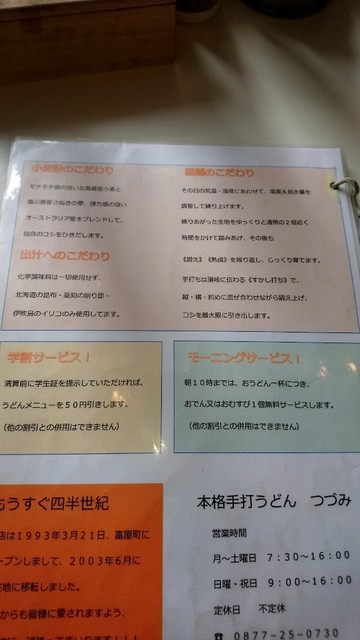 小麦粉のこだわり
モチモチ感の強い北海道産小麦と
香川県産さぬきの夢、弾力感の強い
オーストラリア産をブレンドして、
独自のコシをひきだします。
出汁へのこだわり
化学調味料は一切使用せず、
北海道の昆布・高知の削り節・
伊吹島のイリコのみ使用してます。
麺のこだわり
その日の気温・湿度にあわせて、塩度&加水量を
調整して練り上げます。
練りあがった生地をゆっくりと通常の2倍近く
時間をかけて踏みあげ、その後も
《鍛え》《熟成》を繰り返し、じっくり育てます。
手打ちは讃岐に伝わる《すかし打ち》で、
縦・横・斜めに混ぜ合わせながら鍛え上げ、
コシを最大限に引き出します。
学割サービス!
清算前に学生証を提示していただければ、
うどんメニューを50円引きします。
(他の割引との併用はできません)
モーニングサービス!
朝10時までは、おうどん一杯につき、
おでん又はおむすび1個無料サービスします。
(他の割引との併用はできません)
もうすぐ四半世紀
店は1993年3月21日、冨屋町に
ープンしまして、2003年6月に
在地に移転しました。
からも皆様に愛されますよう、
本格手打うどん つづみ
営業時間
月〜土曜日 7:30〜16:00
日曜・祝日 9:00〜16:00
定休日 不定休
☎ 0877-25-0730